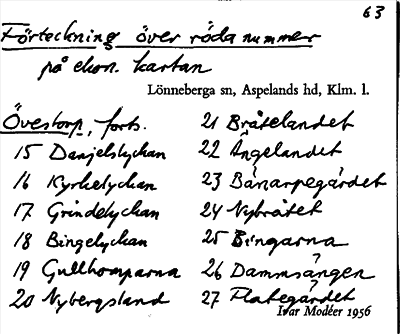 63
Förteckning över röda nummer
på ekon. kartan
Lönneberga sn, Aspelands hd, Klm. l.
Övestorp, forts.
15 Danjelslyckan
16 Kyrkelyckan
17 Grindelyckan
18 Bingelyckan
19 Gullhomparna
20 Nybergsland
21 Bråtelandet
22 Ängelandet
23 Bånarpegärdet
24 Nybråtet
25 Bingarna
26 Dammsängen
?
27 Flategärdet
?
Ivar Modéer 1956